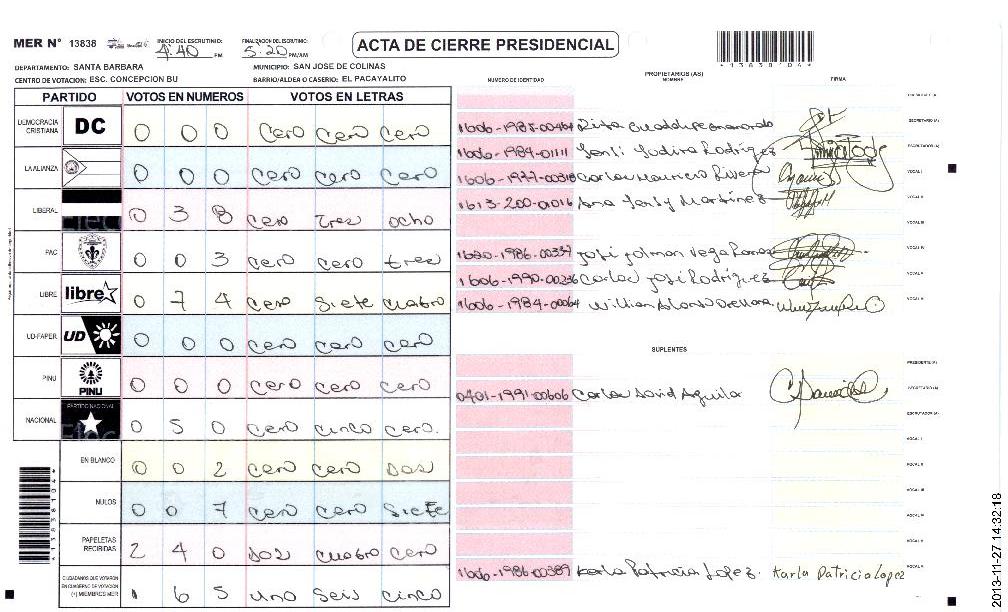 MER N° 13838 INICIO DEL ESCRUTINIO: 4:40 PM FINALIZACION DEL ESCRUTINIO: 5:20 PM/AM ACTA DE CIERRE PRESIDENCIAL
DEPARTAMENTO: SANTA BARBARA MUNICIPIO: SAN JOSE DE COLINAS
CENTRO DE VOTACION: ESC. CONCEPCION BU BARRIO/ALDEA O CASERIO: EL PACAYALITO
PARTIDO VOTOS EN NUMEROS VOTOS EN LETRAS
DEMOCRACIA CRISTIANA DC 0 0 0 cero cero cero
LA ALIANZA 0 0 0 cero cero cero
LIBERAL 0 3 8 cero tres ocho
PAC 0 0 3 cero cero tres
LIBRE libre 0 7 4 cero siete cuatro
UD-FAPER UD 0 0 0 cero cero cero
PINU PINU 0 0 0 cero cero cero
NACIONAL PARTIDO NACIONAL 0 5 0 cero cinco cero.
EN BLANCO 0 0 2 cero cero dos
NULOS 0 0 7 cero cero siete
PAPELETAS RECIBIDAS 2 4 0 dos cuatro cero
CIUDADANOS QUE VOTARON EN CUADERNO DE VOTACION (+) MIEMBROS MER 1 6 5 uno seis cinco
*13838104*
PROPIETARIOS (AS)
NUMERO DE IDENTIDAD NOMBRE FIRMA
SECRETARIO (A)
1606-1984-01111 Rodriguez ESCRUTADOR (A)
Carlos Mauricio Rivera VOCAL I
Ana Martinez VOCAL II
VOCAL III
1620-1986-00337 VOCAL IV
1606-1990-00236 Carlos José Rodríguez VOCAL V
1606-1984-00064
SUPLENTES
PRESIDENTE (A)
0401-1991-00606 Carlos David Aguilar SECRETARIO (A)
ESCRUTADOR (A)
VOCAL I
VOCAL II
VOCAL III
VOCAL IV
VOCAL V
1606-1986-00389 Karla Patricia Lopez. Karla Patricia Lopez
*13838104*
2013-11-27 14:32:18